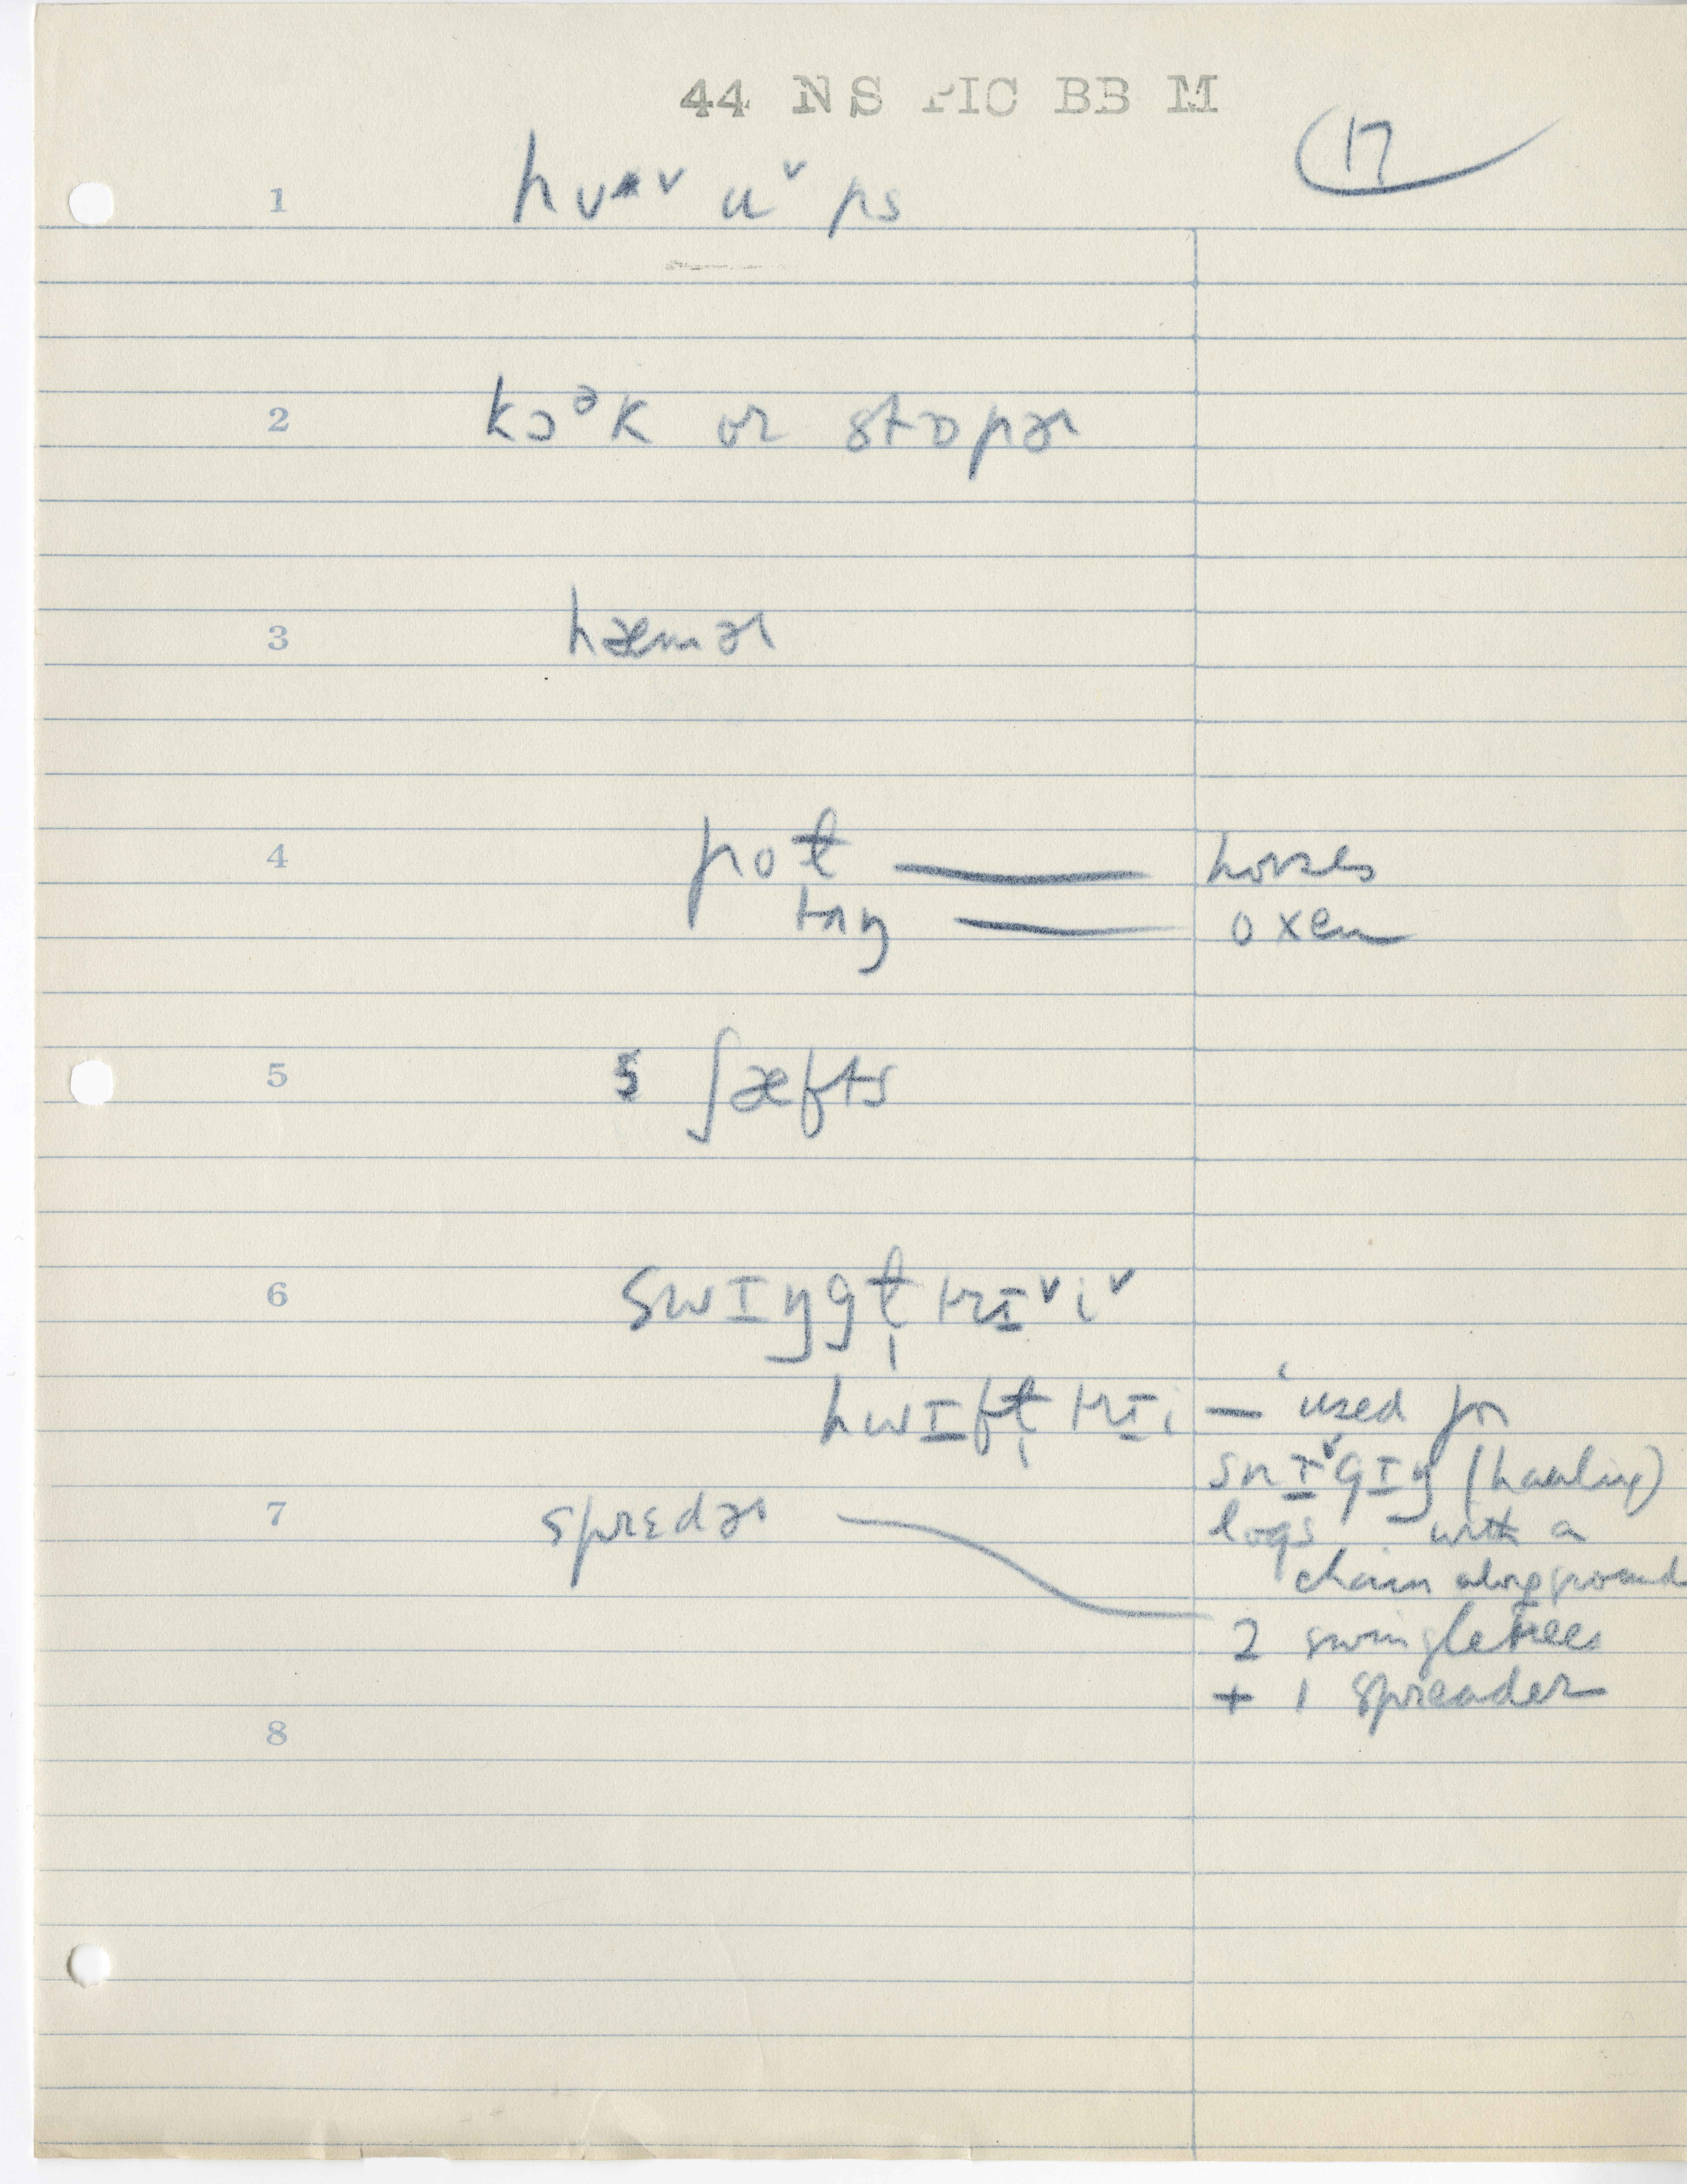 44 NS PIC BB M
17
1 hʊʌ˅ u˅ ps
2 kɔᵊk or stɒpɚ
3 hæmɚ
4 poɫ — horses
tʌŋ — oxen
5 ʃæfts
6 swɪŋgɫ̩trɪ˅i˅
hwɪfɫ̩trɪi — used for
snɪ˅gɪŋ (hauling)
7 sprɛdɚ
logs with a
chain along ground
2 swingletrees
+ 1 spreader
8